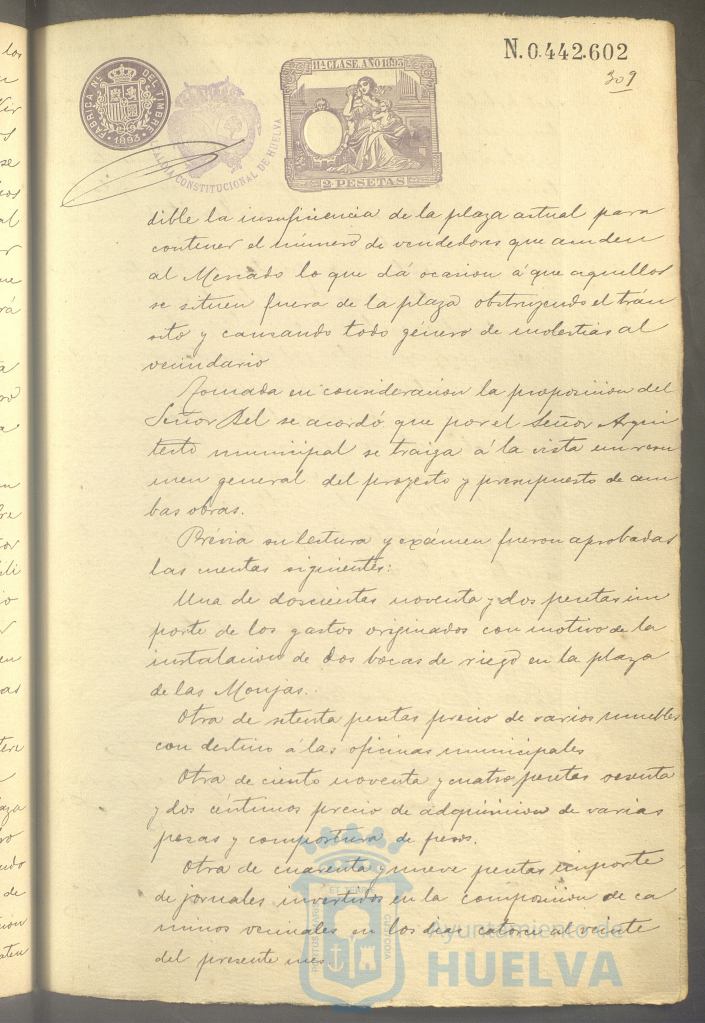 N.0.442.602
309
FABRICA Nº DEL TIMBRE
1893
ALCALDIA CONSTITUCIONAL DE HUELVA
11ª CLASE. AÑO 1893
2 PESETAS
dible la insuficiencia de la plaza actual para
contener el número de vendedores que acuden
al Mercado lo que dá ocasion á que aquellos
se situen fuera de la plaza obstruyendo el trán
sito y causando todo género de molestias al
vecindario
Tomada en consideracion la proposicion del
Señor Bel se acordó que por el Señor Arqui
tecto municipal se traiga á la vista un resu
men general del proyecto y presupuesto de am
bas obras.
Prévia su lectura y exámen fueron aprobadas
las cuentas siguientes:
Una de doscientas noventa y dos pesetas im
porte de los gastos originados con motivo de la
instalacion de dos bocas de riego en la plaza
de las Monjas.
Otra de setenta pesetas precio de varios muebles
con destino á las oficinas municipales
Otra de ciento noventa y cuatro pesetas
y dos céntimos precio de adquisicion de varias
pesas y compostura de pesos.
Otra de cuarenta y nueve pesetas importe
de jornales invertidos en la composicion de ca
minos vecinales en los dias catorce al veinte
del presente mes.
Ayuntamiento de
HUELVA